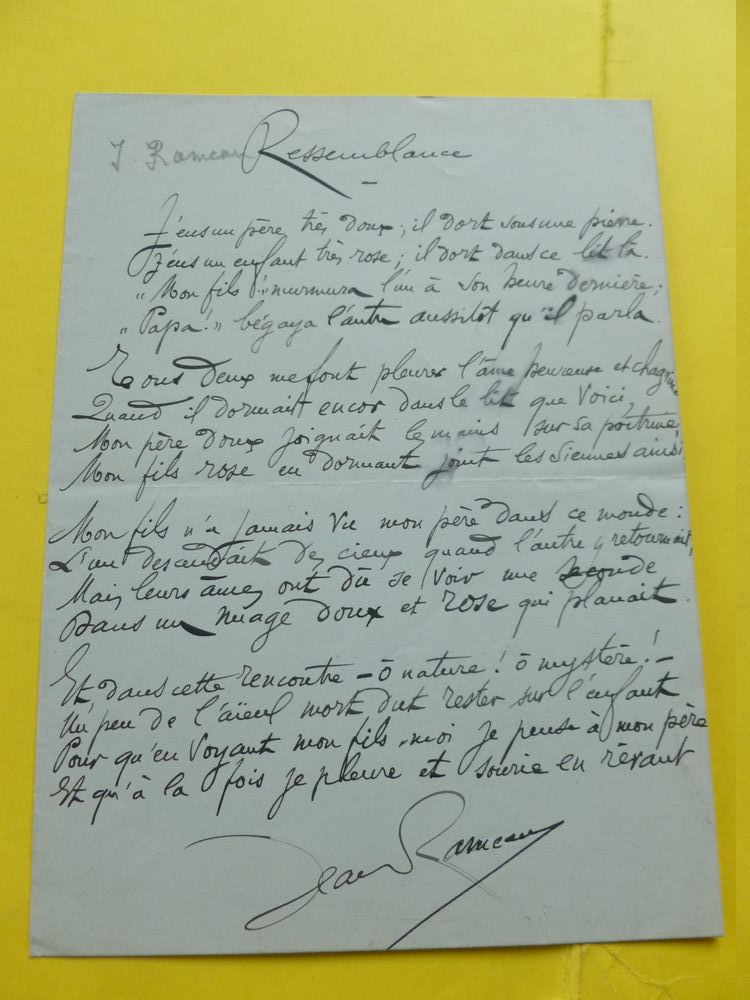 J Rameau
Ressemblance
J'eus un père très doux ; il dort sous une pierre.
J'eus un enfant très rose ; il dort dans ce lit là.
"Mon fils !" murmura l'un à son heure dernière ;
"Papa !" bégaya l'autre aussitôt qu'il parla.
Tous deux me font pleurer l'âme heureuse et chagrine
Quand il dormait encor dans le lit que voici,
Mon père doux joignait les mains sur sa poitrine,
Mon fils rose en dormant joint les siennes ainsi
Mon fils n'a jamais vu mon père dans ce monde :
L'un descendait des cieux quand l'autre y retournait,
Mais leurs âmes ont dû se voir une seconde
Dans un nuage doux et rose qui planait.
Et dans cette rencontre – ô nature ! ô mystère ! –
Un peu de l'aïeul mort dut rester sur l'enfant
Pour qu'en voyant mon fils, moi je pense à mon père
Et qu'à la fois je pleure et sourie en rêvant
Jean Rameau